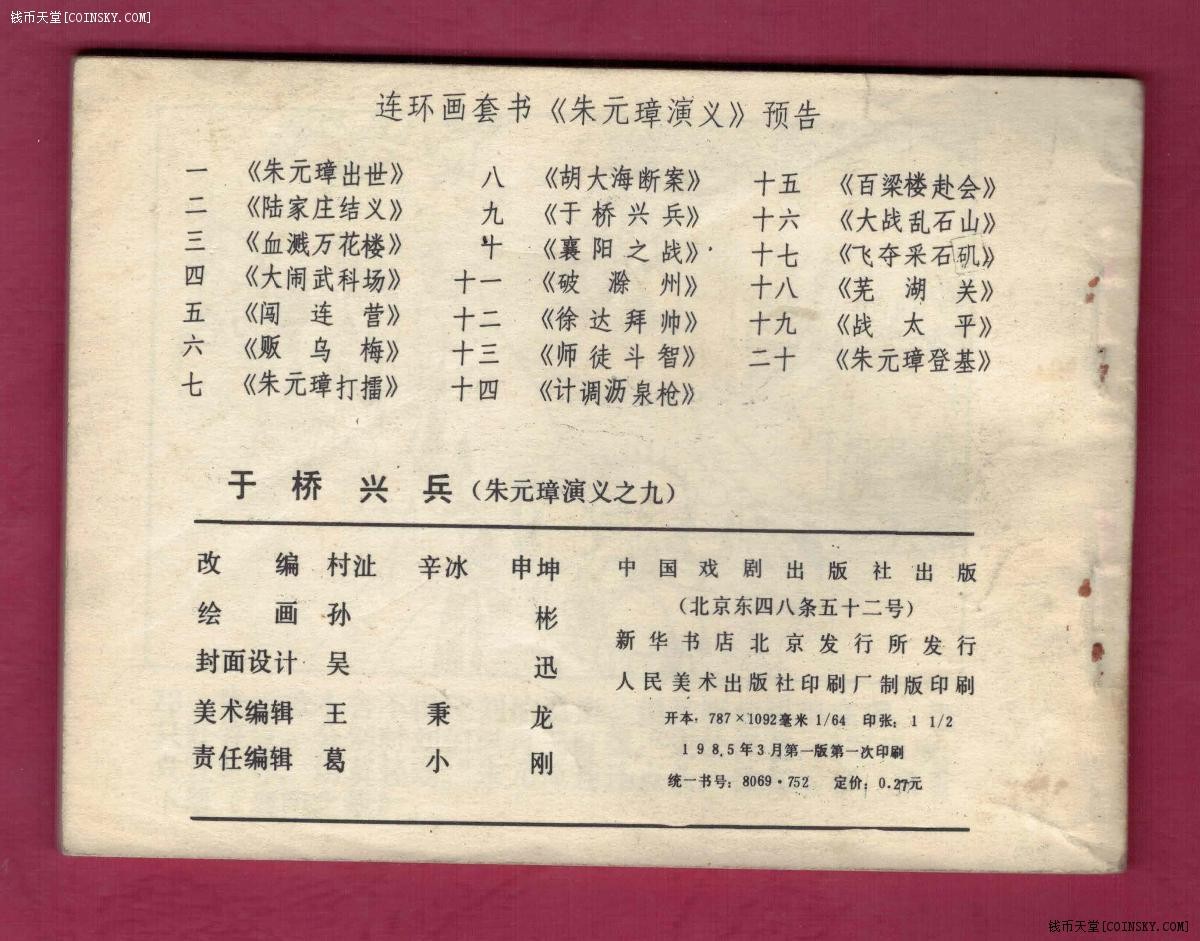 钱币天堂[COINSKY.COM]
连环画套书《朱元璋演义》预告
一 《朱元璋出世》 八 《胡大海断案》 十五 《百梁楼赴会》
二 《陆家庄结义》 九 《于桥兴兵》 十六 《大战乱石山》
三 《血溅万花楼》 十 《襄阳之战》 十七 《飞夺采石矶》
四 《大闹武科场》 十一 《破滁州》 十八 《芜湖关》
五 《闯连营》 十二 《徐达拜帅》 十九 《战太平》
六 《贩乌梅》 十三 《师徒斗智》 二十 《朱元璋登基》
七 《朱元璋打擂》 十四 《计调沥泉枪》
于桥兴兵（朱元璋演义之九）
改编 村沚 辛冰 申坤
绘画 孙彬
封面设计 吴迅
美术编辑 王秉龙
责任编辑 葛小刚
中国戏剧出版社出版
（北京东四八条五十二号）
新华书店北京发行所发行
人民美术出版社印刷厂制版印刷
开本：787×1092毫米 1/64 印张：1 1/2
1985年3月第一版第一次印刷
统一书号：8069·752 定价：0.27元
钱币天堂[COINSKY.COM]